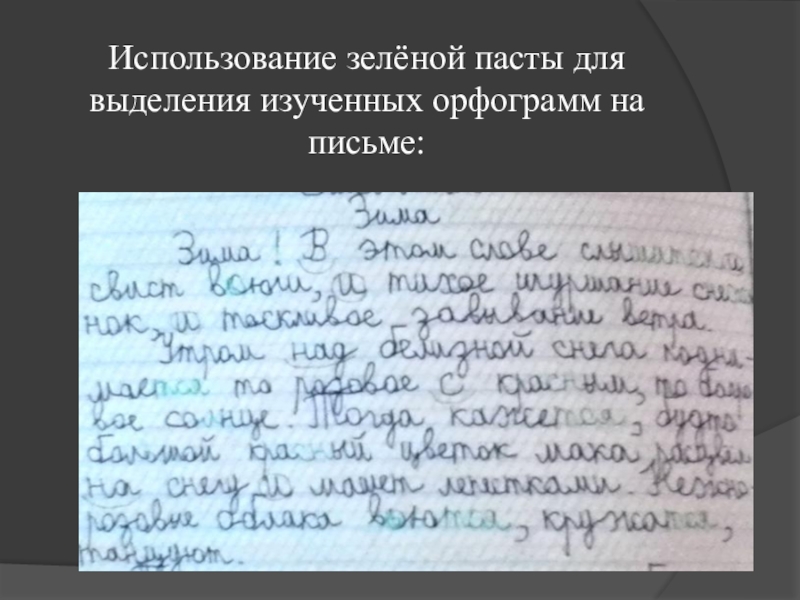 Использование зелёной пасты для
выделения изученных орфограмм на
письме:
Зима
Зима! В этом слове слышатся и
свист вьюги, и тихое шуршание снежи
нок, и тоскливое завывание ветра.
Утром над белизной снега подни-
мается то розовое с красным, то
вое солнце. Тогда кажется, будто
большой красный цветок мака расцвел
на снегу и машет лепестками. Нежно-
розовые облака вьются, кружатся,
танцуют.